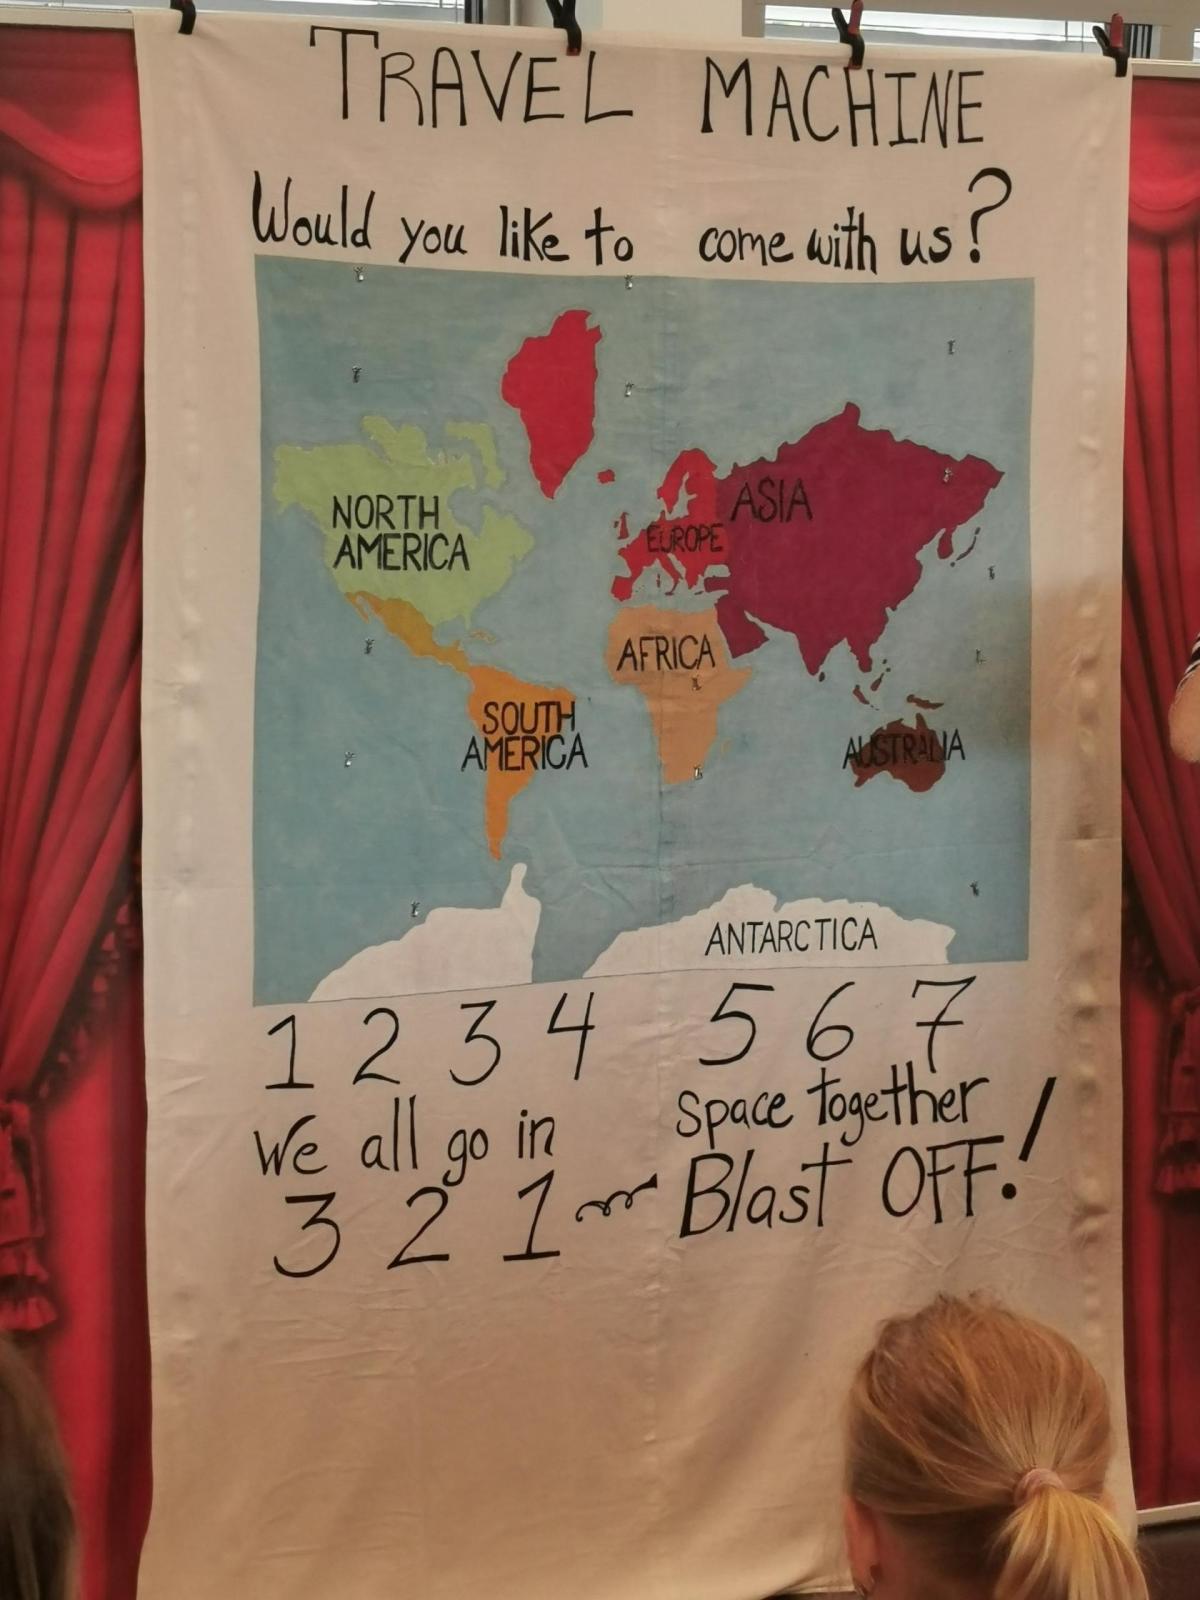 TRAVEL MACHINE
Would you like to come with us?
NORTH
AMERICA
EUROPE
ASIA
AFRICA
SOUTH
AMERICA
AUSTRALIA
ANTARCTICA
1 2 3 4 5 6 7
We all go in space together
3 2 1 Blast OFF!